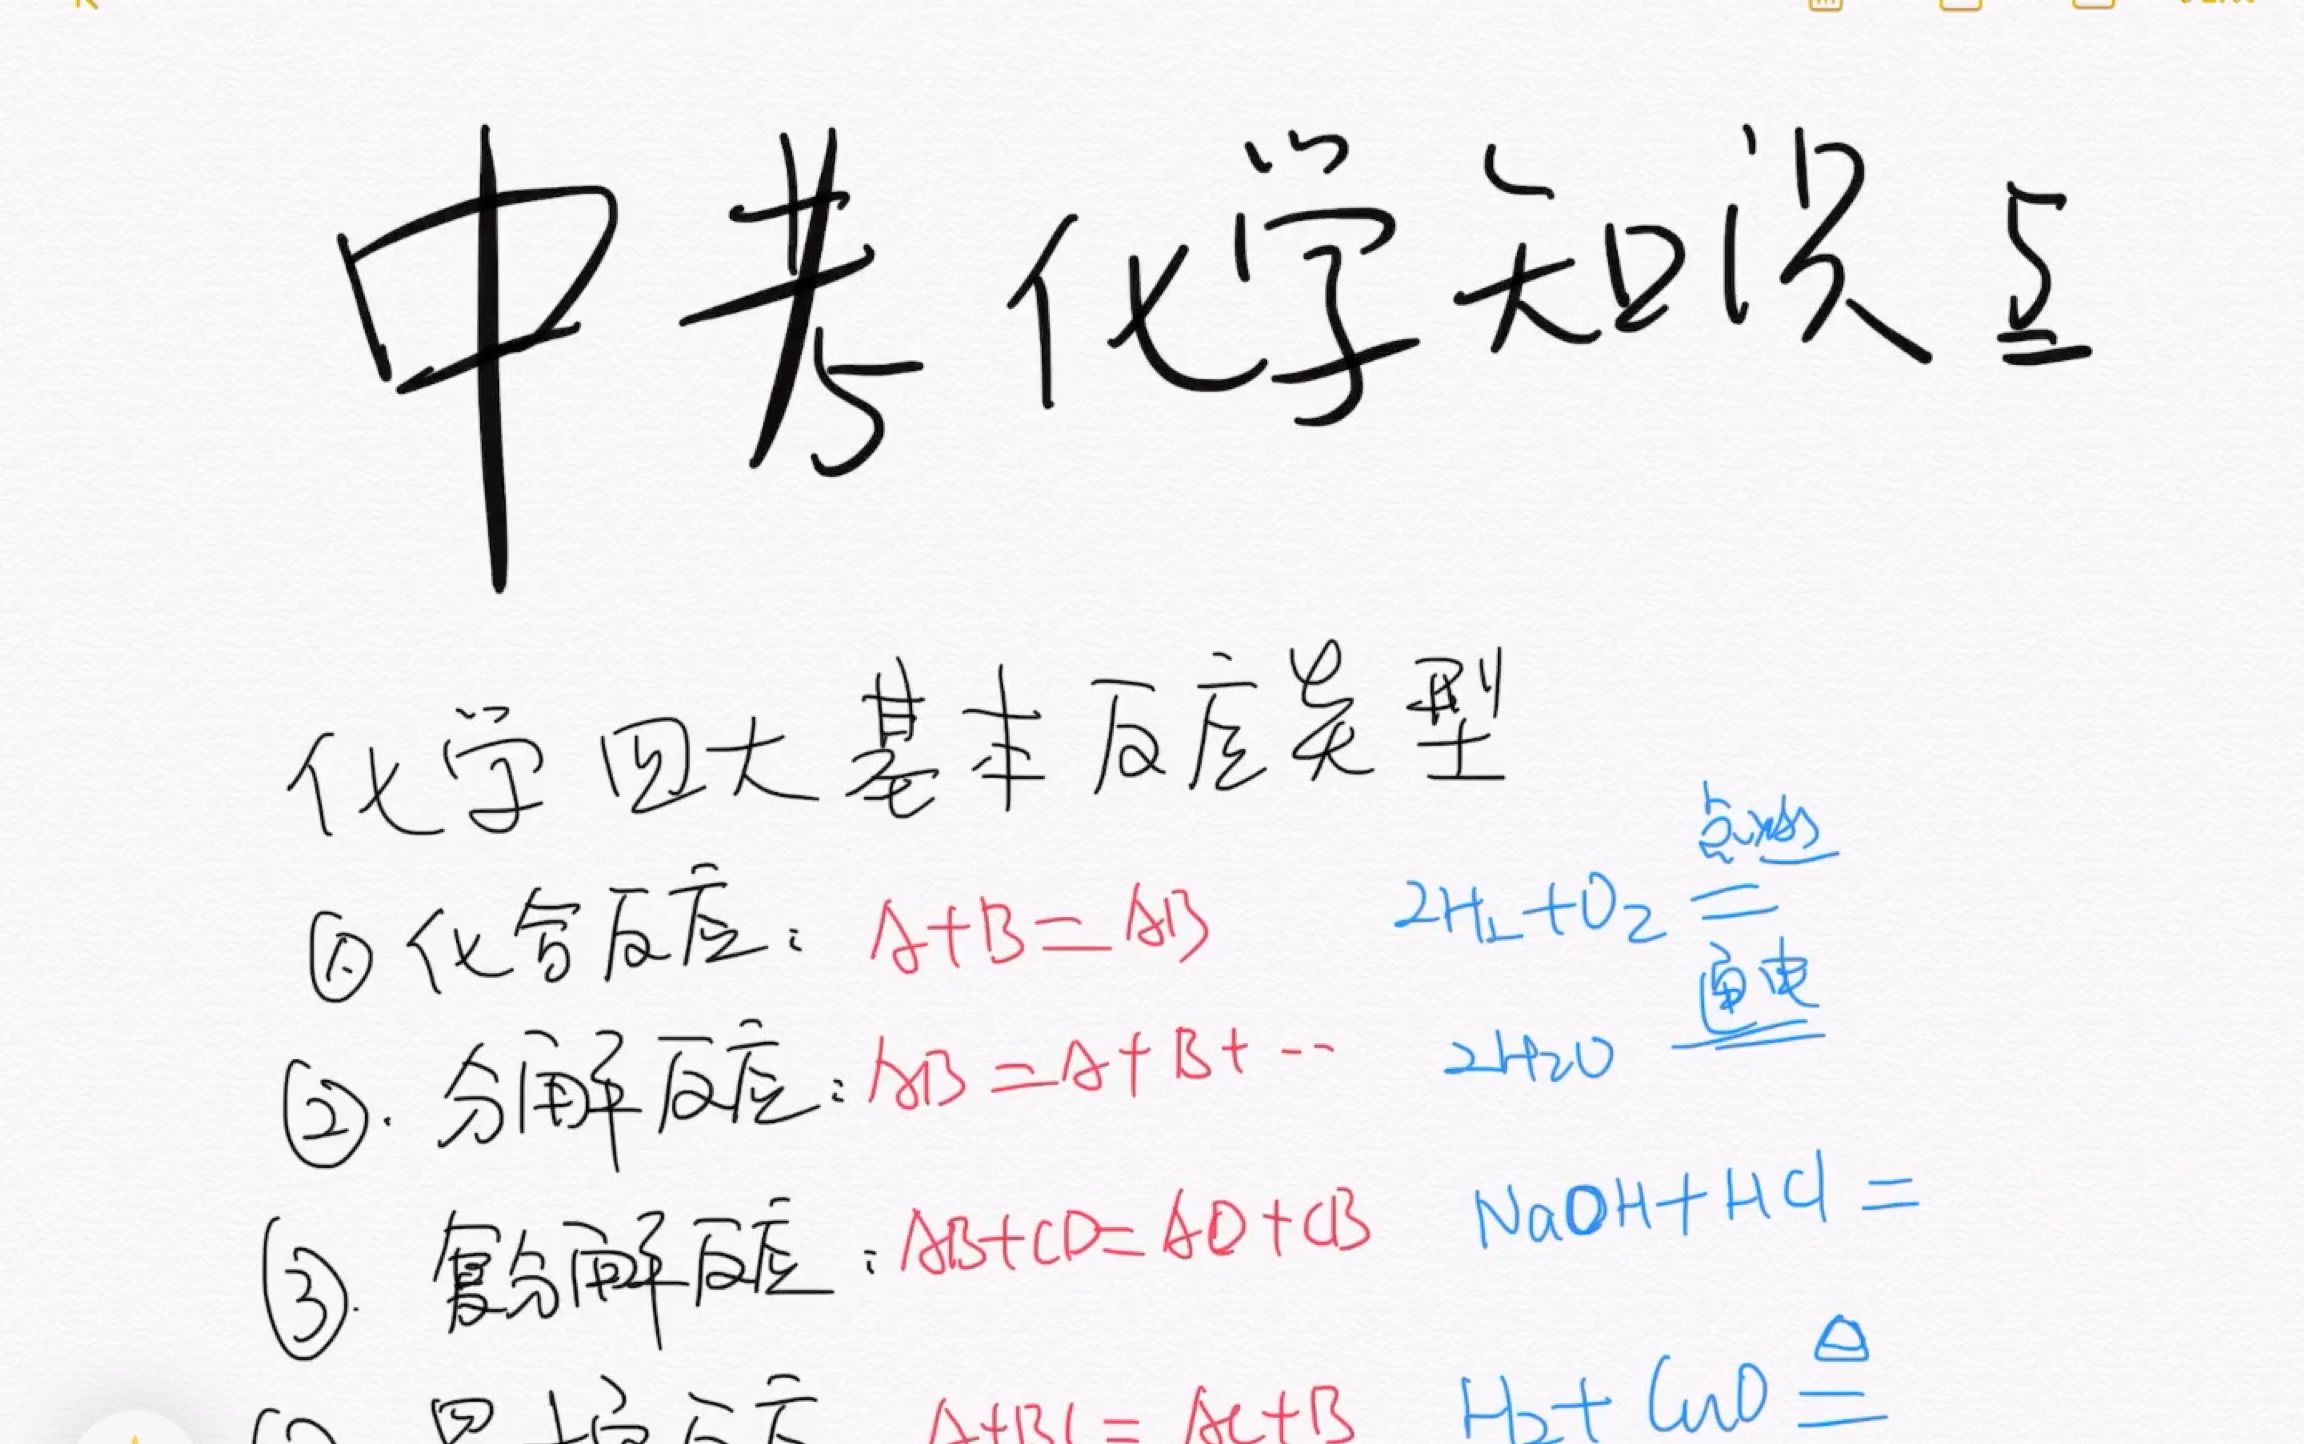 中考化学知识点
化学四大基本反应类型
① 化合反应： A+B=AB 2H₂+O₂ 点燃 =
②. 分解反应： AB=A+B+… 2H₂O 通电 =
③. 复分解反应： AB+CD=AD+CB NaOH+HCl=
置换反应 A+BC=AC+B H₂+CuO △ =